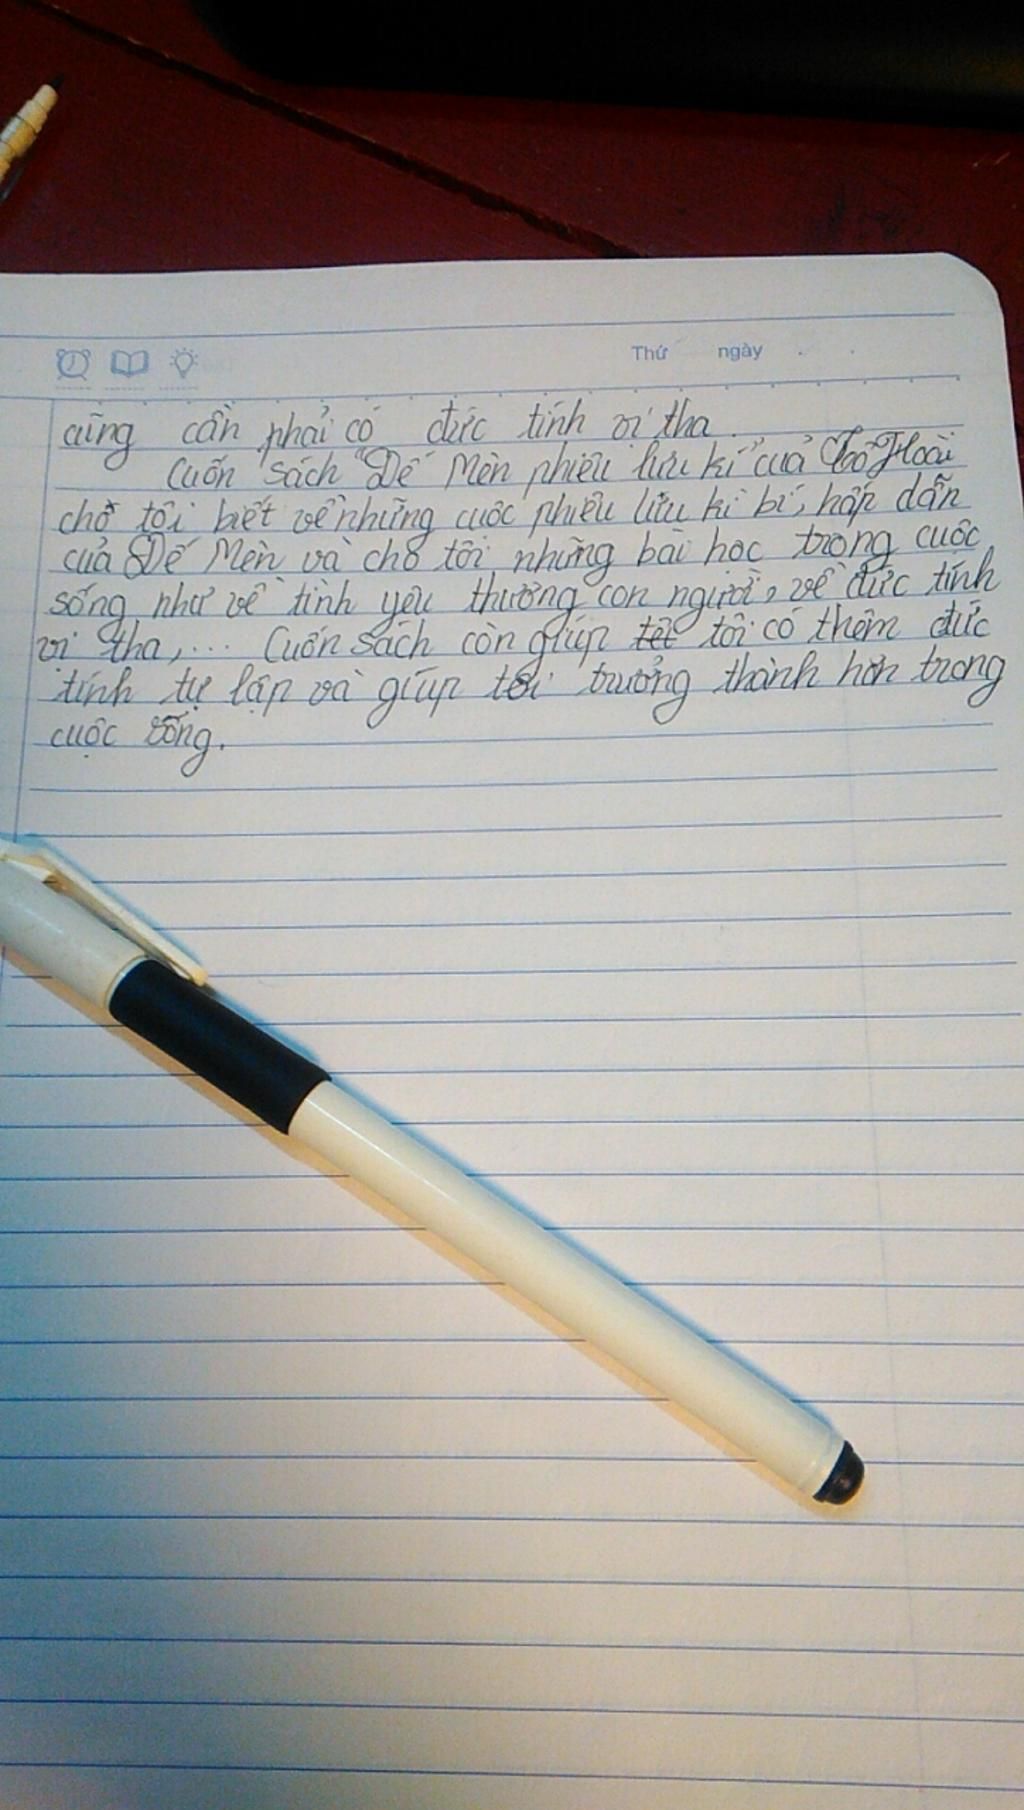 Thứ ngày
cũng cần phải có đức tính vị tha.
Cuốn sách "Dế Mèn phiêu lưu kí" của Tô Hoài
cho tôi biết về những cuộc phiêu lưu kì bí, hấp dẫn
của Dế Mèn và cho tôi những bài học trong cuộc
sống như về tình yêu thương con người, về đức tính
vị tha,... Cuốn sách còn giúp tôi có thêm đức
tính tự lập và giúp tôi trưởng thành hơn trong
cuộc sống.